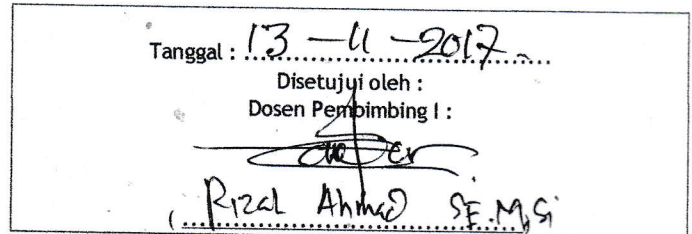 Tanggal : 13 - 11 - 2017
Disetujui oleh :
Dosen Pembimbing I :
( Rizal Ahmad SE. M.Si